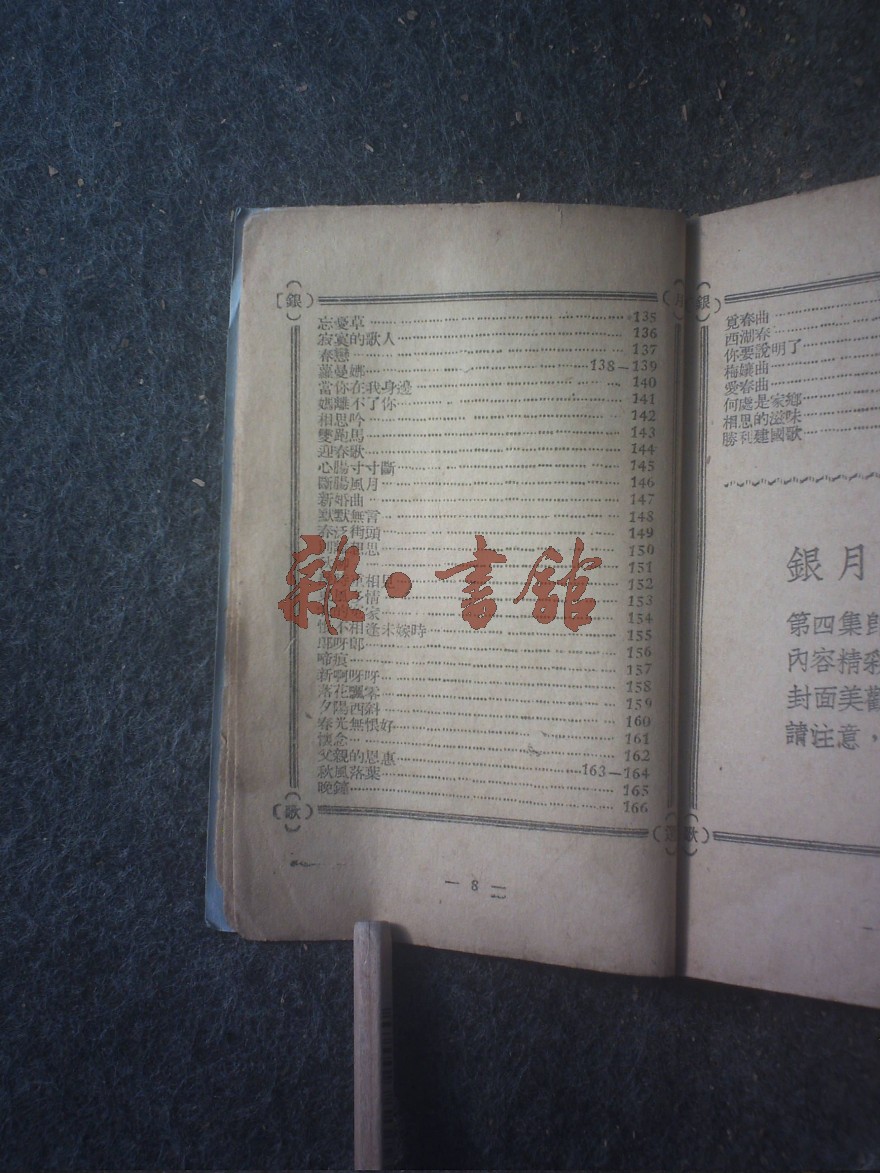 銀
月
忘憂草 135
寂寞的歌人 136
春戀 137
蘿曼娜 138—139
當你在我身邊 140
媽離不了你 141
相思吟 142
雙跑馬 143
迎春歌 144
心腸寸寸斷 145
斷腸風月 146
新婚曲 147
默默無言 148
春泛街頭 149
相思 150
151
相見 152
情 153
家 154
恨不相逢未嫁時 155
郎呀郎 156
啼痕 157
新啊呀呀 158
落花飄零 159
夕陽西斜 160
春光無恨好 161
懷念 162
父親的恩惠 163—164
秋風落葉 165
晚鐘 166
歌
選
— 8 —
雜·書館
銀
覓春曲
西湖春
你要說明了
梅孃曲
愛春曲
何處是家鄉
相思的滋味
勝利建國歌
銀月
第四集
內容精彩
封面美
請注意，
歌